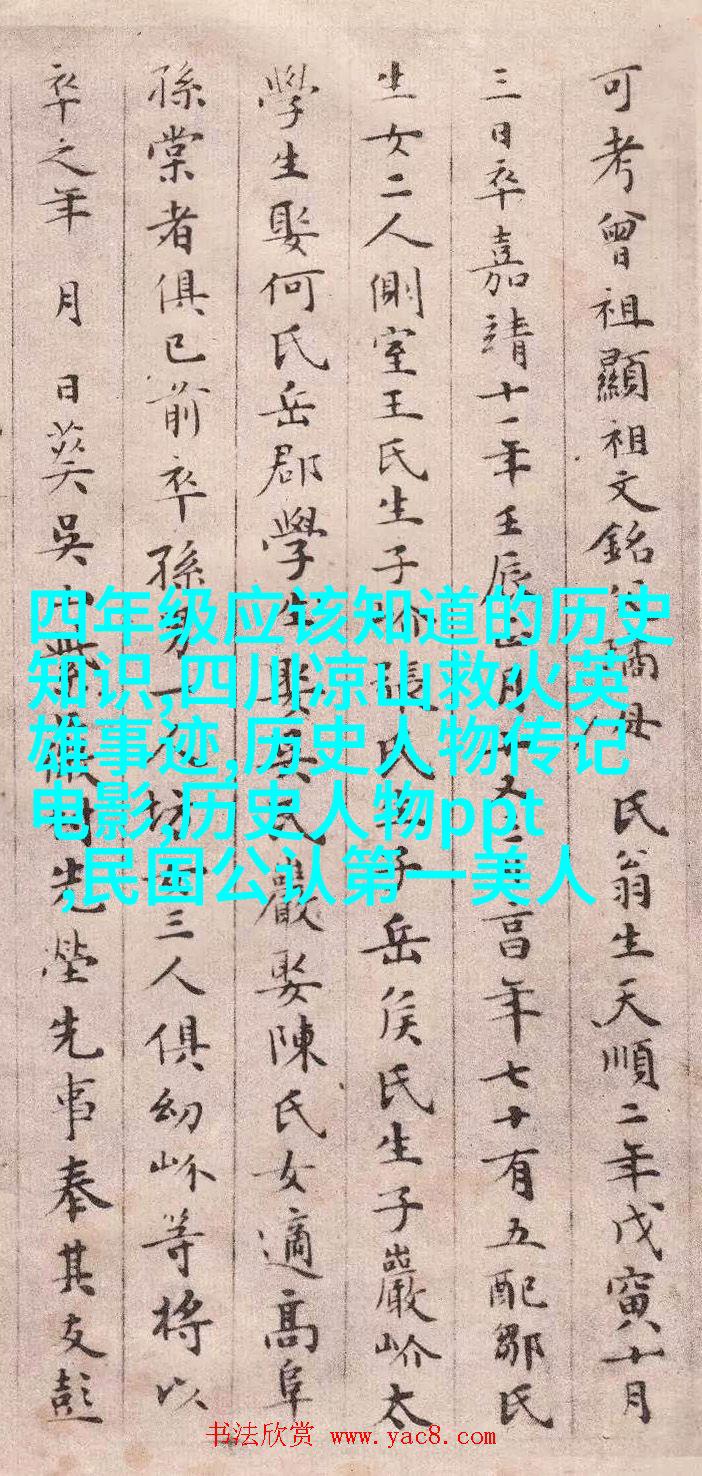 可考曾祖顯祖文銘父璚母 氏翁生天順二年戊寅十月
三日卒嘉靖十一年壬辰正月廿又三日高年七十有五配鄒氏
生女二人側室王氏生子岎張氏生子岳侯氏生子嚴岕太
學生娶何氏岳郡學生娶吳氏嚴娶陳氏女適高阜
孫棠者俱已前卒孫男一人坊女三人俱幼岎等將以
卒之年 月 日葬吳山紫薇村先塋先事奉其友彭
四年级应该知道的历史
知识,四川凉山救火英
雄事迹,历史人物传记
电影,历史人物ppt
,民国公认第一美人
书法欣赏 www.yac8.com